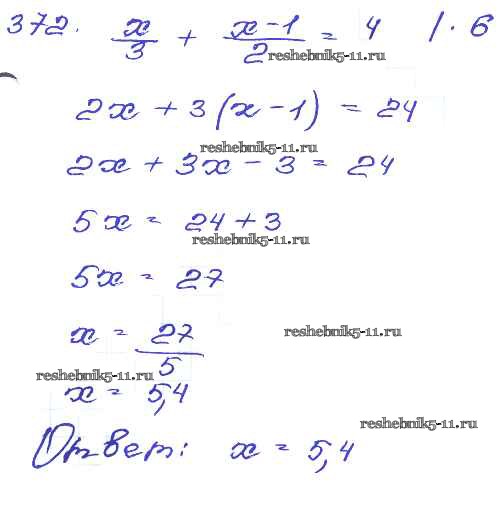 372. x/3 + (x-1)/2 = 4 | · 6
reshebnik5-11.ru
2x + 3(x-1) = 24
reshebnik5-11.ru
2x + 3x - 3 = 24
5x = 24 + 3
reshebnik5-11.ru
5x = 27
x = 27/5
reshebnik5-11.ru
reshebnik5-11.ru
x = 5,4
reshebnik5-11.ru
Ответ: x = 5,4